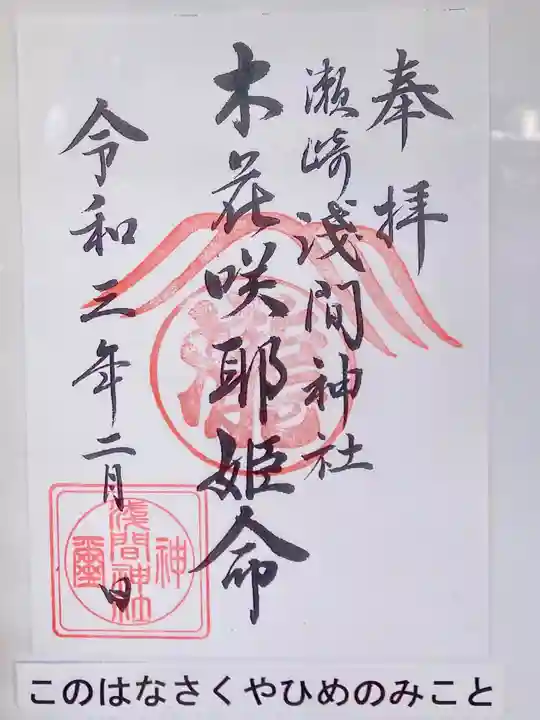 奉拝
瀬崎浅間神社
木花咲耶姫命
令和三年二月 日
浅間神社
神璽
このはなさくやひめのみこと